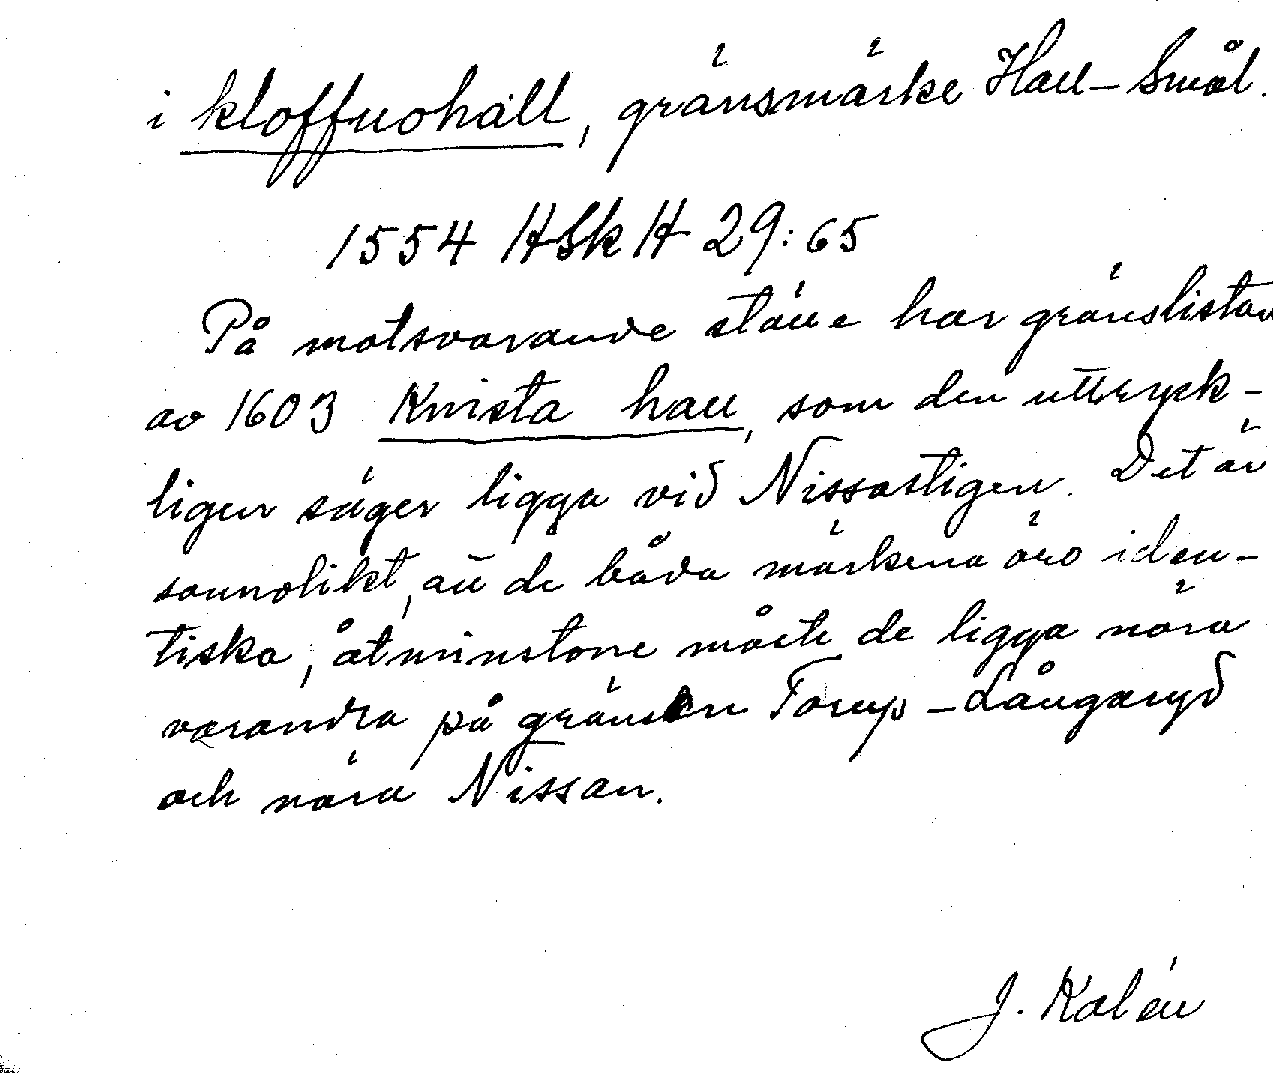 i kloffuohall, gränsmärke Hall-Smål.
1554 HSkH 29:65
På motsvarande ställe har gränslistan
av 1603 Knista hall, som den uttryck-
ligen säger ligga vid Nissastigen. Det är
sannolikt, att de båda märkena äro iden-
tiska, åtminstone måste de ligga nära
varandra på gränsen Torup-Långaryd
och nära Nissan.
J. Kalén